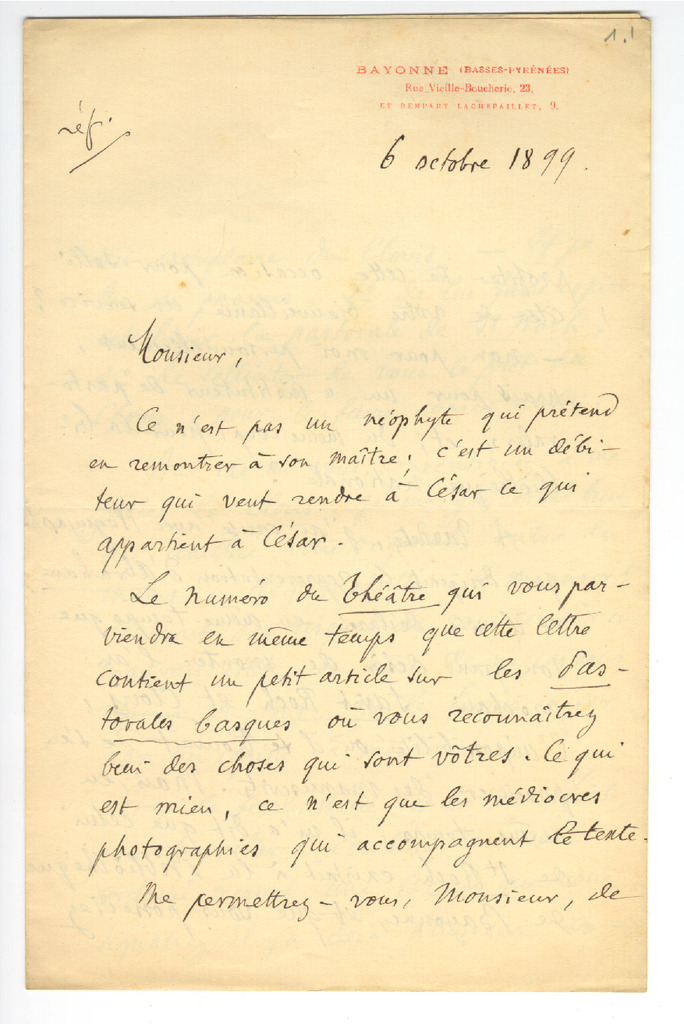 1.1
BAYONNE (BASSES-PYRÉNÉES)
Rue Vieille-Boucherie, 23,
ET REMPART LACHEPAILLET, 9.
réf.
6 octobre 1899.
Monsieur,
Ce n'est pas un néophyte qui prétend
en remontrer à son maître ; c'est un débi-
teur qui veut rendre à César ce qui
appartient à César.
Le numéro du Théâtre qui vous par-
viendra en même temps que cette lettre
contient un petit article sur les Pas-
torales basques où vous reconnaîtrez
bien des choses qui sont vôtres. Ce qui
est mien, ce n'est que les médiocres
photographies qui accompagnent le texte.
Me permettrez-vous, Monsieur, de